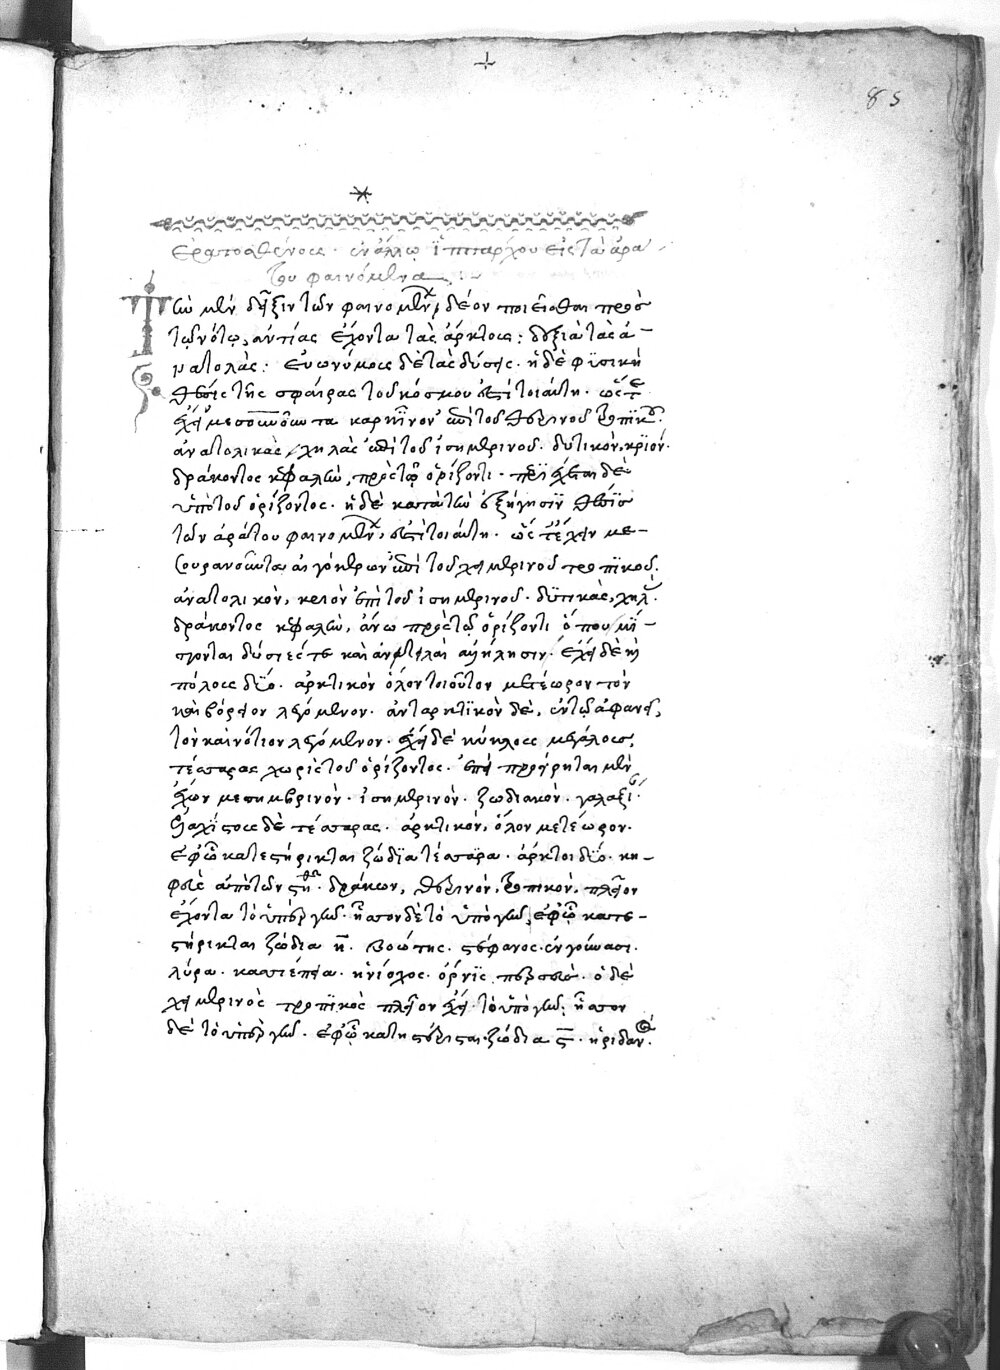 85
Ερατοσθένους· ἐν ἄλλῳ ἱππάρχου εἰς τὰ ἀρά
του φαινόμενα
Τὴν μὲν δεῖξιν τῶν φαινομένων, δέον ποιεῖσθαι πρὸς
τῷ νότῳ, ἀντίας ἔχοντα τὰς ἄρκτους· δεξιὰ τὰς ἀ
νατολάς· εὐωνύμους δὲ τὰς δύσεις· ἡ δὲ φυσικὴ
θέσις τῆς σφαίρας τοῦ κόσμου ἐστὶ τοιαύτη· ὥστε
ἔχειν μεσουρανοῦντα καρκῖνον ἐπὶ τοῦ θερινοῦ τροπικοῦ·
ἀνατολικὰς, χηλὰς ἐπὶ τοῦ ἰσημερινοῦ· δυτικὸν, κριόν·
δράκοντος κεφαλὴν, πρὸς τῷ ὁρίζοντι· δὲ
ὑπὸ τοῦ ὁρίζοντος· ἡ δὲ κατὰ τὴν ἐξήγησιν θέσις
τῶν ἀράτου φαινομένων, ἐστὶ τοιαύτη· ὥστε ἔχειν με
σουρανοῦντα αἰγόκερων ἐπὶ τοῦ χειμερινοῦ τροπικοῦ·
ἀνατολικὸν, κριὸν ἐπὶ τοῦ ἰσημερινοῦ· δυτικὰς, χηλάς·
δράκοντος κεφαλὴν, ἄνω πρὸς τῷ ὁρίζοντι ὅπου μί
σγονται δύσιές τε καὶ ἀντολαὶ ἀλλήλησιν· ἔχει δὲ καὶ
πόλους δύο· ἀρκτικὸν ὅλον τοιοῦτον μετέωρον τὸν
καὶ βόρειον λεγόμενον· ἀνταρκτικὸν δὲ, ἐν τῷ ἀφανεῖ,
τὸν καὶ νότιον λεγόμενον· ἔχει δὲ κύκλους μεγάλους,
τέσσαρας χωρὶς τοῦ ὁρίζοντος· ἐπεὶ προείρηται μὲν
ἔχων μεσημβρινὸν· ἰσημερινὸν· ζωδιακὸν· γαλαξίαν·
ἐλαχίστους δὲ τέσσαρας· ἀρκτικὸν, ὅλον μετέωρον·
ἐφ' ᾧ κατεστήρικται ζώδια τέσσαρα· ἄρκτοι δύο· κη
φεὺς ἀπὸ τῶν στηθῶν· δράκων, θερινὸν, τροπικὸν, πλεῖον
ἔχοντα τὸ ὑπὲρ γῆν· ἧττον δὲ τὸ ὑπὸ γῆν, ἐφ' ᾧ κατε
στήρικται ζώδια η· βοώτης· στέφανος· ἐν γόνασι·
λύρα· κασσιέπεια· ἡνίοχος· ὄρνις περσεὺς· ὁ δὲ
χειμερινὸς τροπικὸς πλεῖον ἔχει τὸ ὑπὸ γῆν· ἧττον
δὲ τὸ ὑπὲρ γῆν· ἐφ' ᾧ κατηστέρισται ζώδια ϛ· ἠριδανός·